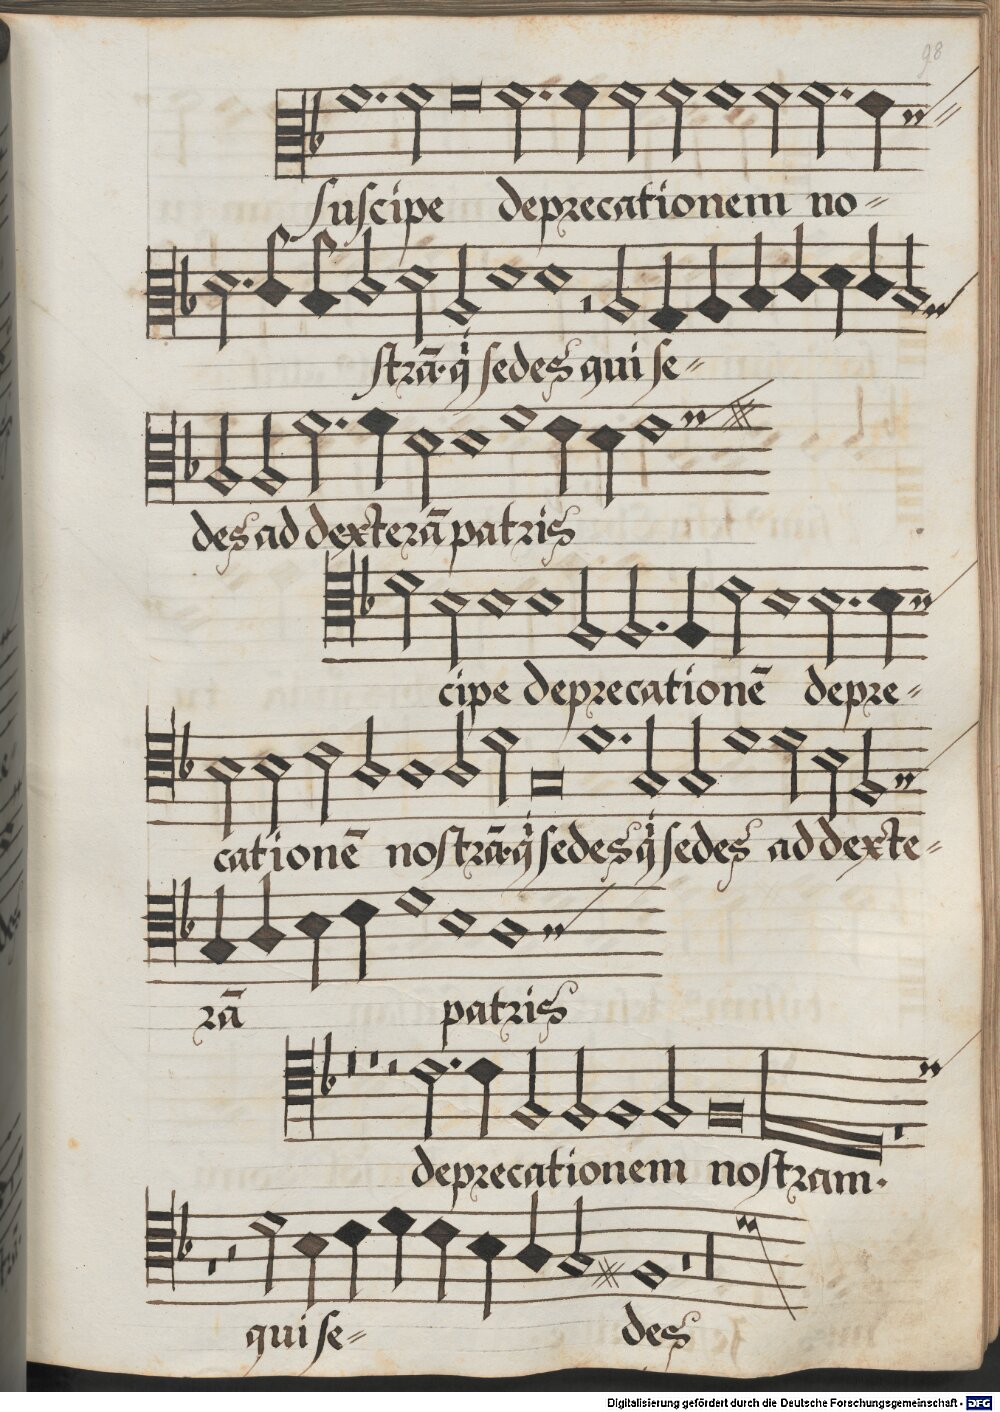 98
suscipe deprecationem no=
strā·q̇ sedes qui se=
des ad dexterā patris
cipe deprecationē depre=
cationē nostrā·q̇ sedes q̇ sedes ad dexte=
rā patris
deprecationem nostram·
qui se= des
Digitalisierung gefördert durch die Deutsche Forschungsgemeinschaft - DFG